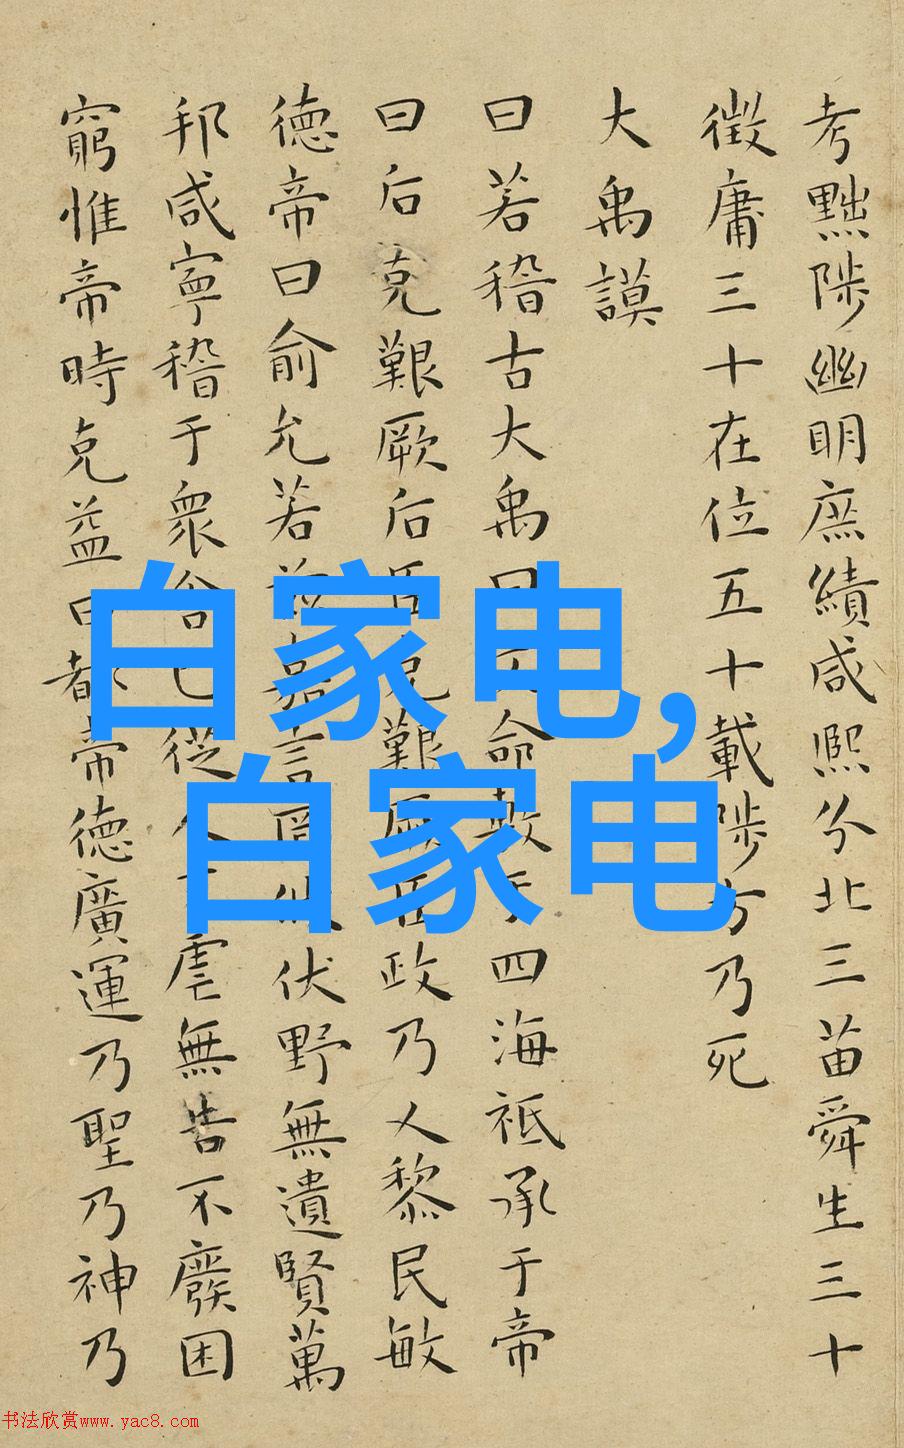 考黜陟幽明庶績咸熙分北三苗舜生三十
徵庸三十在位五十載陟方乃死
大禹謨
曰若稽古大禹曰文命敷于四海祗承于帝
曰后克艱厥后臣克艱厥臣政乃乂黎民敏
德帝曰俞允若茲嘉言罔攸伏野無遺賢萬
邦咸寧稽于衆舍己從人不虐無告不廢困
窮惟帝時克益曰都帝德廣運乃聖乃神乃
白家电,
白家电
书法欣赏www.yac8.com